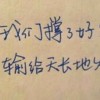 我们撑了好
输给天长地久